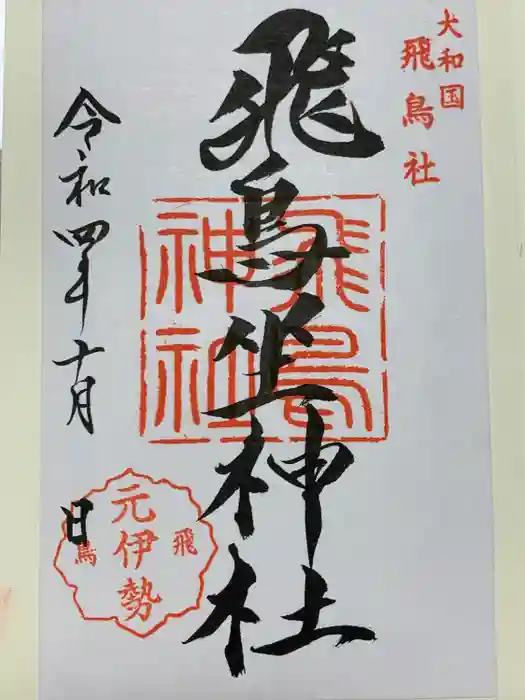 大和国
飛鳥社
飛鳥坐神社
飛鳥
神社
令和四年十月
日
飛鳥
元伊勢